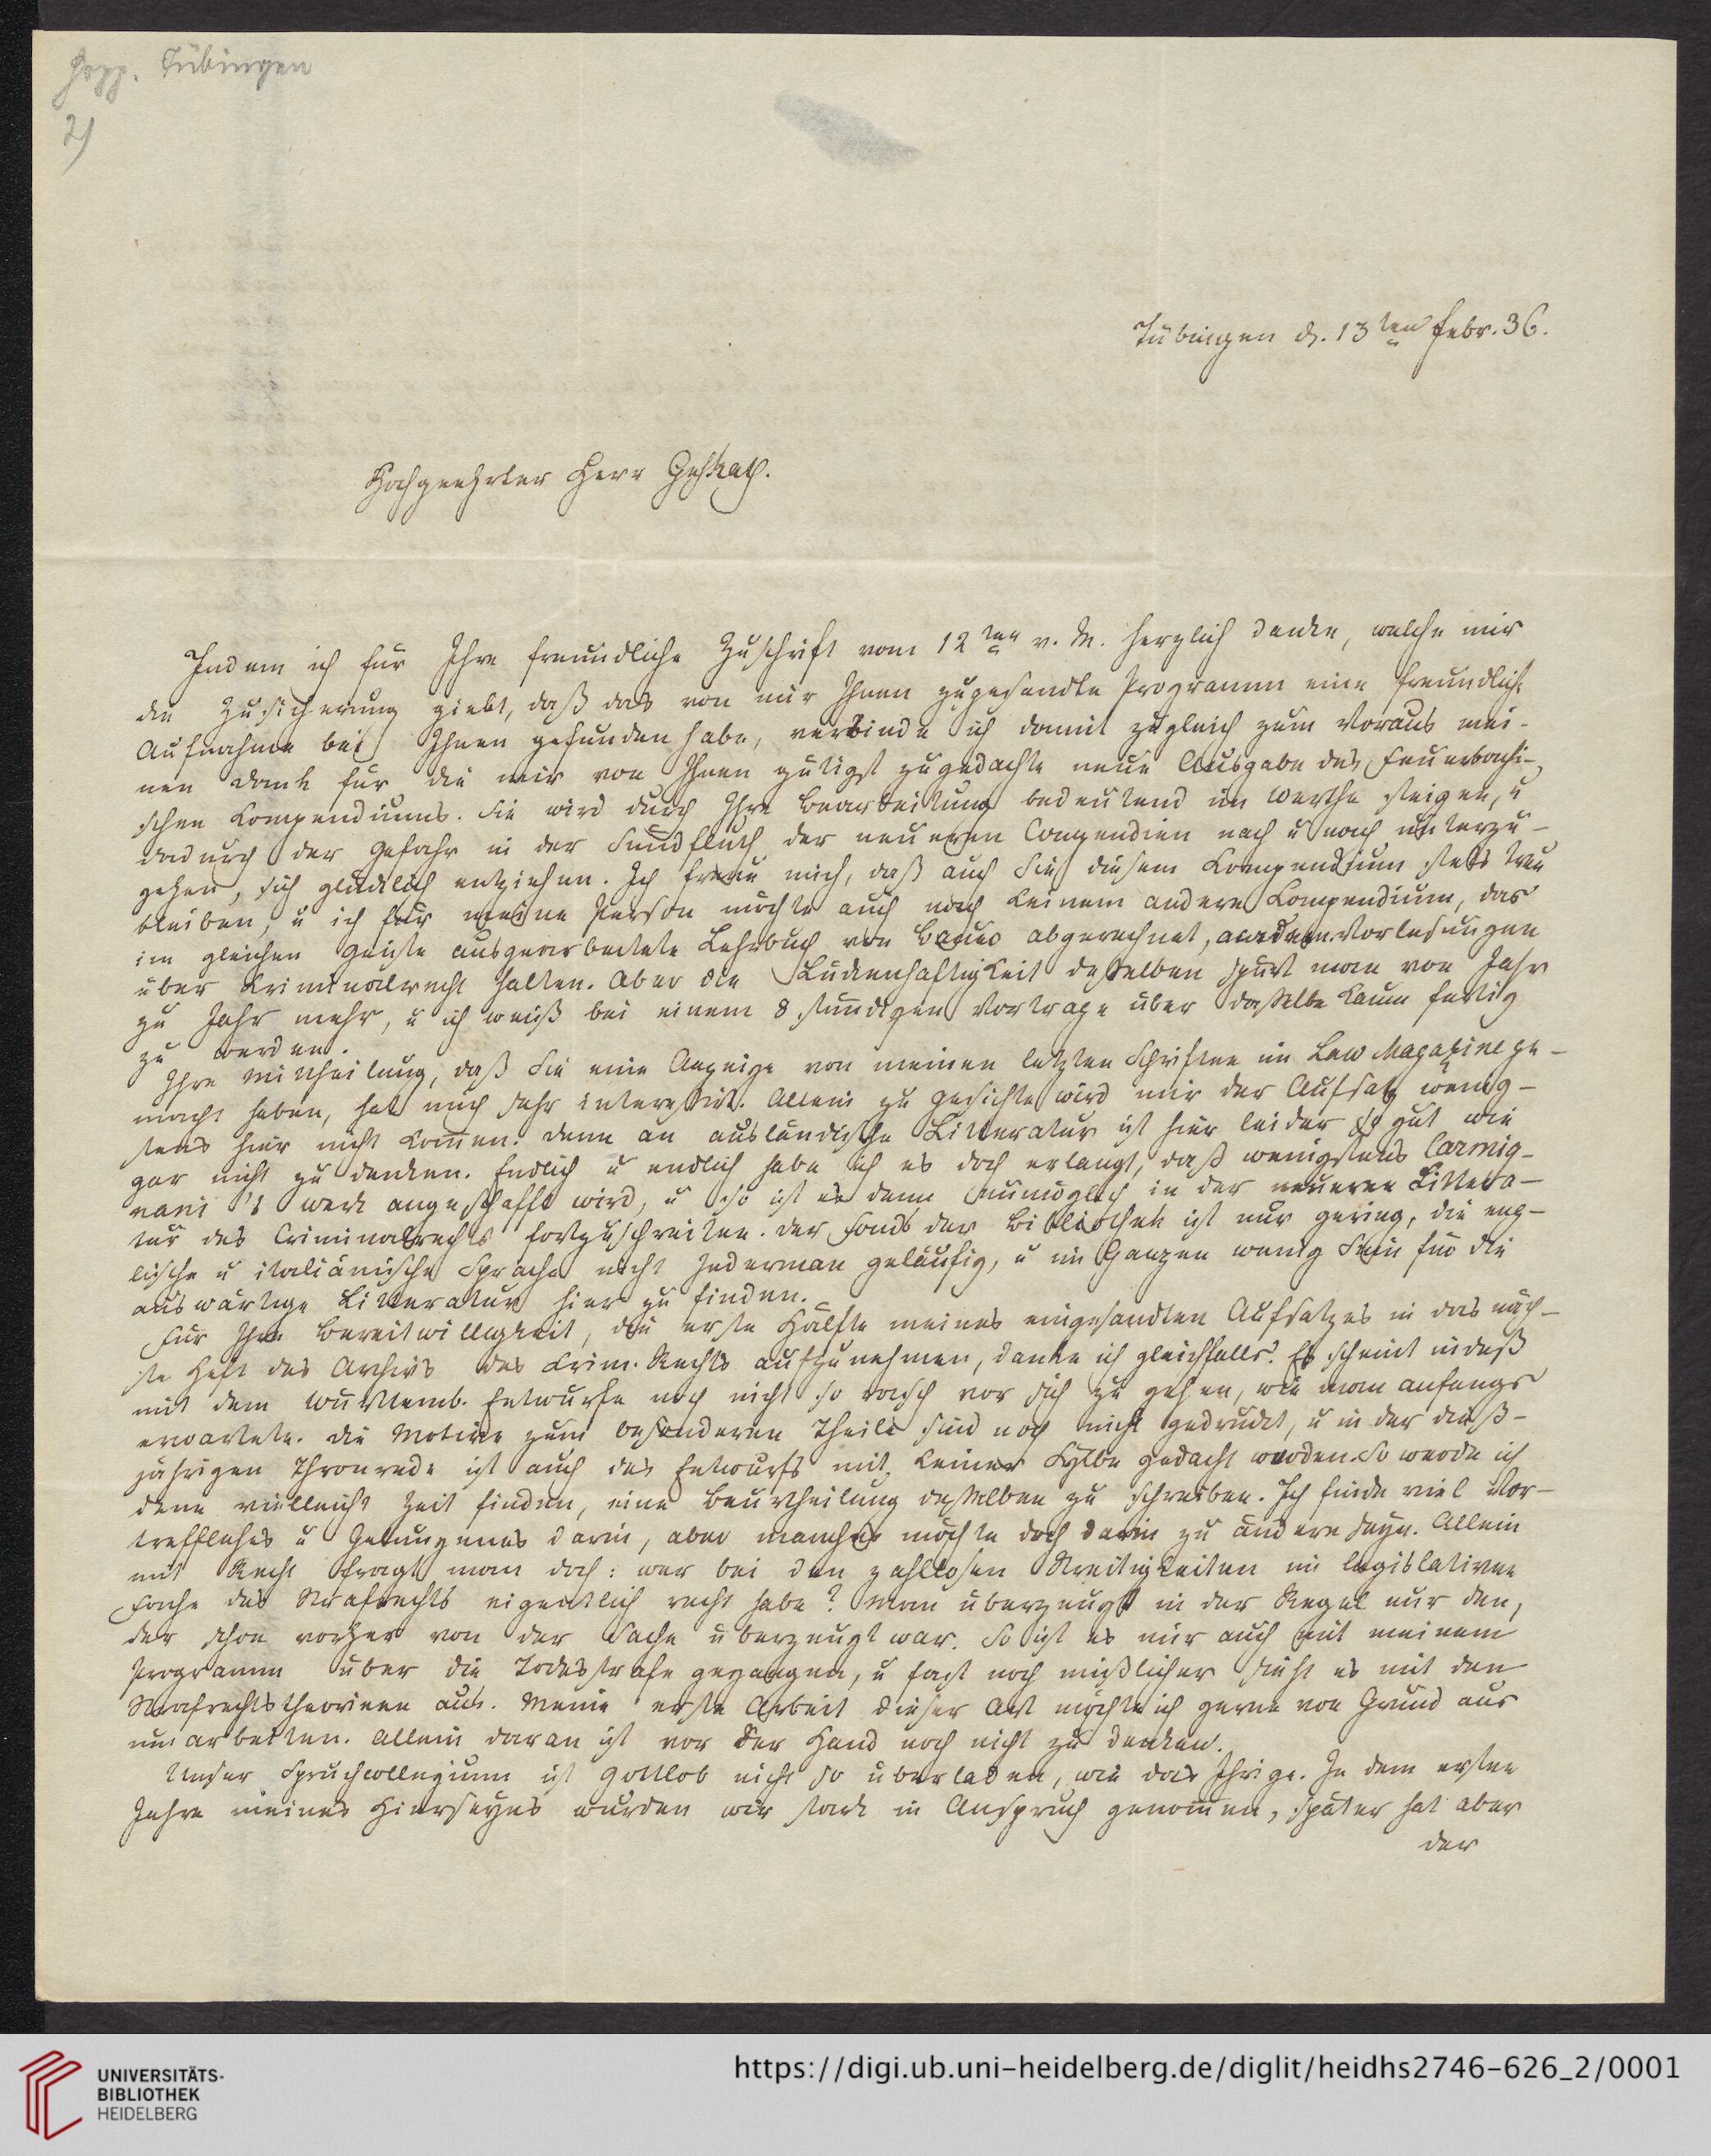 Hepp. Tübingen
2)
Tübingen d. 13ten Febr. 36.
Hochgeehrter Herr GehRath.
Indem ich für Ihre freundliche Zuschrift vom 12ten v. M. herzlich danke, welche mir
die Zusicherung giebt, daß das von mir Ihnen zugesandte Programm eine freundliche
Aufnahme bei Ihnen gefunden habe, verbinde ich damit zugleich zum Voraus mei-
nen Dank für die mir von Ihnen gütigst zugedachte neue Ausgabe des Feuerbachi-
schen Compendiums. Sie wird durch Ihre Bearbeitung bedeutend im Werthe steigen, u
dadurch der Gefahr in der Sündfluth der neueren Compendien nach u nach unterzu-
gehen, sich glücklich entziehen. Ich freue mich, daß auch Sie diesem Compendium stets treu
bleiben, u ich für meine Person möchte auch nach keinem andern Compendium, das
im gleichen Geiste ausgearbeitete Lehrbuch von Bauer abgerechnet, Vorlesungen
über Kriminalrecht halten. Aber die Lückenhaftigkeit desselben spürt man von Jahr
zu Jahr mehr, u ich weiß bei einem 8 stündigen Vortrage über dasselbe kaum fertig
zu werden.
Ihre Mittheilung, daß Sie eine Anzeige von meinen letzten Schriften im Law Magazine ge-
macht haben, hat mich sehr interessirt. Allein zu Gesichte wird mir der Aufsatz wenig-
stens hier nicht kommen. denn an ausländische Litteratur ist hier leider so gut wie
gar nicht zu denken. Endlich u endlich habe ich es doch erlangt, daß wenigstens Carmig-
nani's Werk angeschafft wird, u so ist es denn unmöglich in der neueren Littera-
tur des Criminalrechts fortzuschreiten. der Fonds der Bibliothek ist nur gering, die eng-
lische u italiänische Sprache nicht Jederman geläufig, u im Ganzen wenig Sinn für die
auswärtige Litteratur hier zu finden.
Für Ihre Bereitwilligkeit, die erste Hälfte meines eingesandten Aufsatzes in das näch-
ste Heft des Archivs des Crim. Rechts aufzunehmen, danke ich gleichfalls. Es scheint indeß
mit dem Württemb. Entwurfe noch nicht so rasch vor sich zu gehen, wie man anfangs
erwartete. die Motive zum besonderen Theile sind noch nicht gedruckt, u in der dieß-
jährigen Thronrede ist auch des Entwurfs mit keiner Sylbe gedacht worden. So werde ich
denn vielleicht Zeit finden, eine Beurtheilung desselben zu schreiben. Ich finde viel Vor-
treffliches u Gelungenes darin, aber manches möchte doch darin zu ändern seyn. Allein
mit Recht fragt man doch: wer bei den zahllosen Streitigkeiten im legislativen
Fache des Strafrechts eigentlich recht habe? Man überzeugt in der Regel nur den,
der schon vorher von der Sache überzeugt war. So ist es mir auch mit meinem
Programm über die Todesstrafe gegangen, u fast noch mißlicher sieht es mit den
Strafrechtstheorieen aus. Meine erste Arbeit dieser Art möchte ich gerne von Grund aus
umarbeiten. Allein daran ist vor der Hand noch nicht zu denken.
Unser Spruchcollegium ist gottlob nicht so überladen, wie das Ihrige. In dem ersten
Jahre meines Hierseyns wurden wir stark in Anspruch genommen, später hat aber
der
UNIVERSITÄTS-
BIBLIOTHEK
HEIDELBERG
https://digi.ub.uni-heidelberg.de/diglit/heidhs2746-626_2/0001